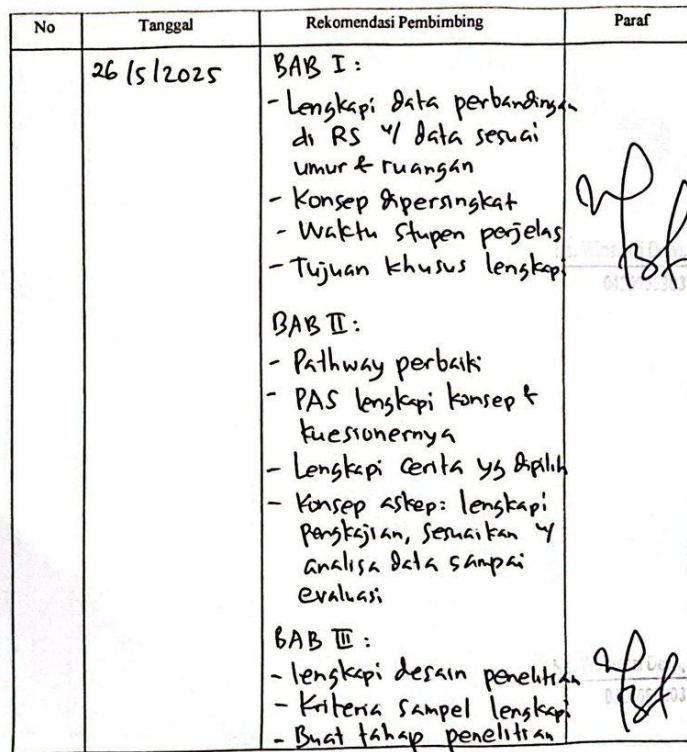 No Tanggal Rekomendasi Pembimbing Paraf
26/5/2025 BAB I :
- Lengkapi data perbandingan
di RS w/ data sesuai
umur & ruangan
- Konsep dipersingkat
- Waktu Stupen perjelas
- Tujuan khusus lengkapi
BAB II :
- Pathway perbaiki
- PAS lengkapi konsep &
kuesionernya
- Lengkapi cerita yg dipilih
- Konsep askep: lengkapi
pengkajian, sesuaikan w/
analisa data sampai
evaluasi
BAB III :
- lengkapi desain penelitian
- Kriteria sampel lengkapi
- Buat tahap penelitian